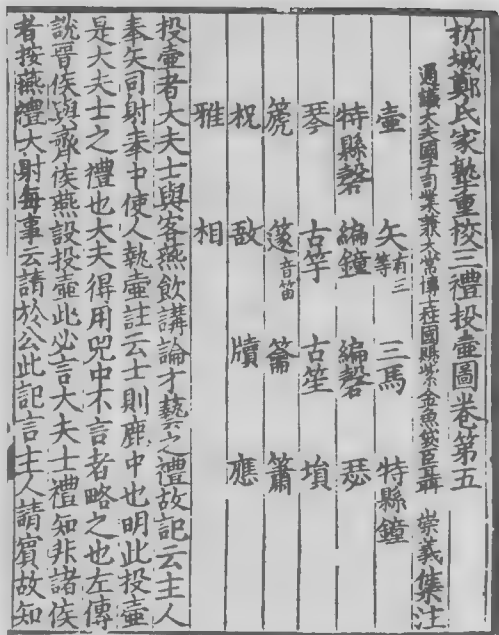 析城鄭氏家塾重校三禮投壺圖卷第五
通議大夫國子司業兼太常博士柱國賜紫金魚袋臣聶 崇義集注
壺 矢有三等 三馬 特縣鐘
特縣磬 編鐘 編磬 瑟
琴 古竽 古笙 塤
篪 篴音笛 籥 簫
柷 敔 牘 應
雅 相
投壺者大夫士與客燕飲講論才藝之禮故記云主人
奉矢司射奉中使人執壺註云士則鹿中也明此投壺
是大夫士之禮也大夫得用兕中不言者略之也左傳
說晉侯與齊侯燕設投壺此必言大夫士禮知非諸侯
者按燕禮大射每事云請於公此記言主人請賓故知